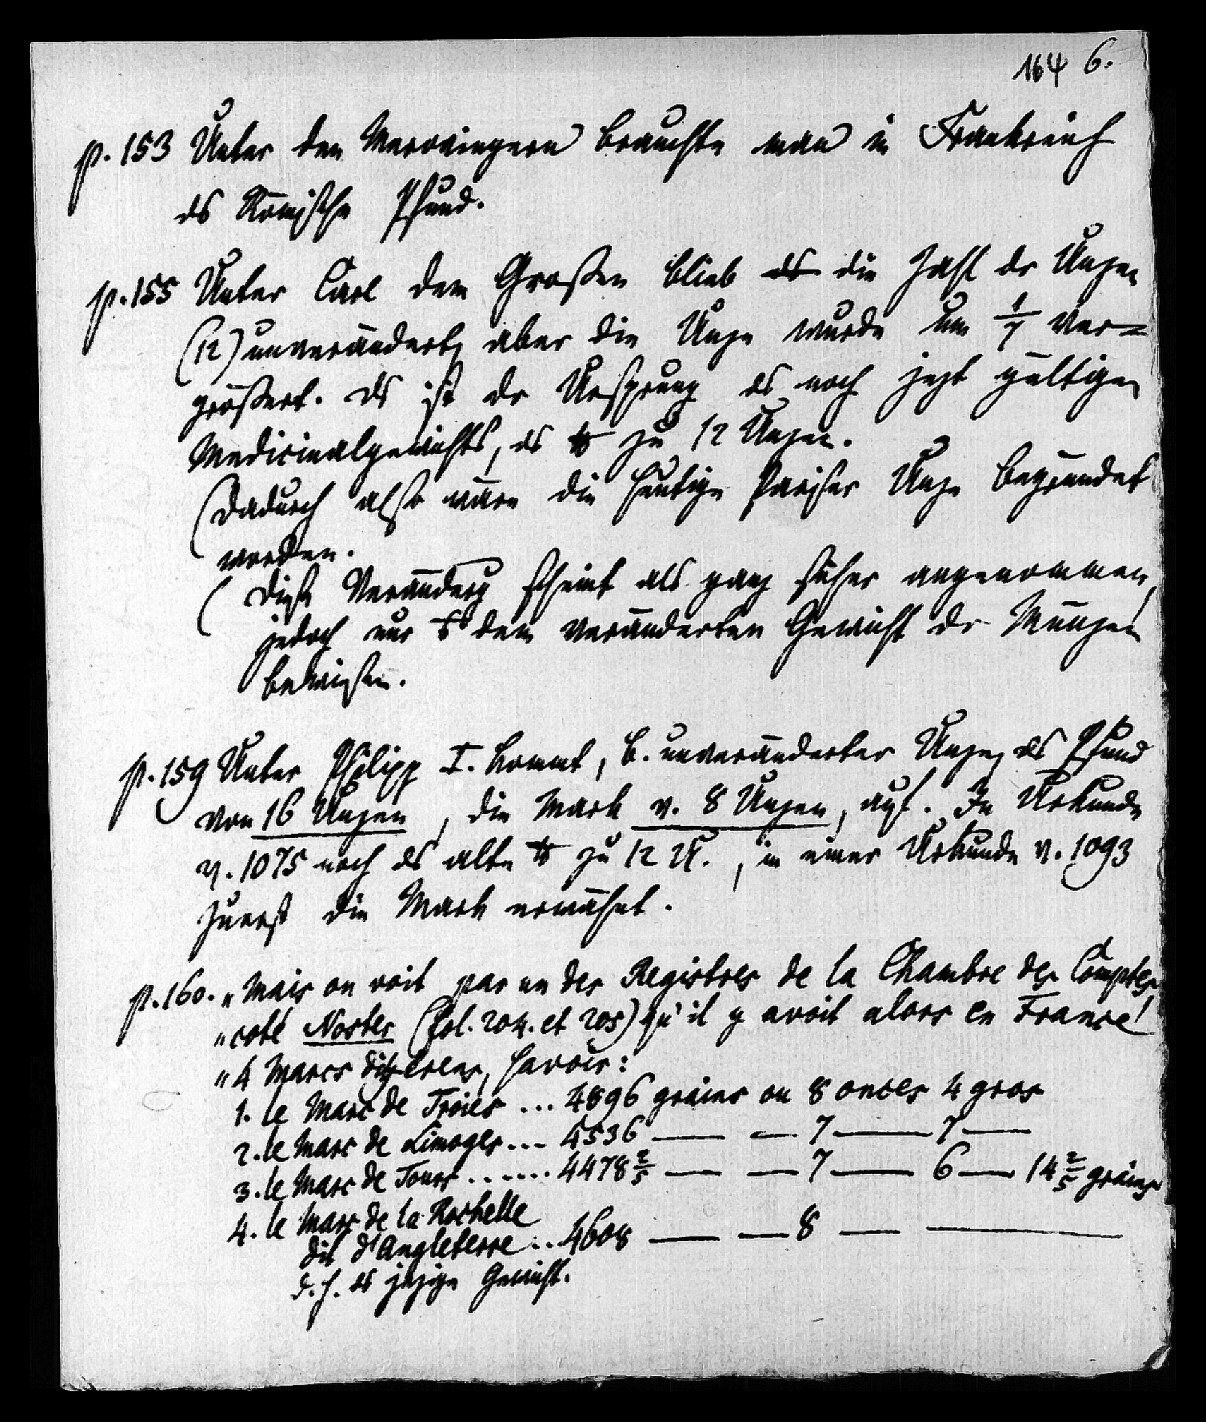 164 6.
p. 153 Unter den Merovingern brauchte man in Frankreich
ds Römische Pfund.
p. 155 Unter Carl dem Großen blieb ds die Zahl dr Unzen
(12) unverändert, aber die Unze wurde um 1/7 ver=
größert. Ds ist dr Ursprung ds noch jezt gültigen
Medicinalgewichts, ds ℔ zu 12 Unzen.
(Dadurch also wäre die heutige Pariser Unze begründet
worden.
(Diese Veränderg scheint als ganz sicher angenommen,
jedoch nur dem veränderten Gewicht dr Münzen
bewiesen.
p. 159 Unter Philipp I. kommt, b. unveränderter Unze, ds Pfund
von 16 Unzen, die Mark v. 8 Unzen, auf. In Urkunde
v. 1075 noch ds alte ℔ zu 12 U., in einer Urkunde v. 1093
zuerst die Mark erwähnt.
p. 160. „Mais on voit par un des Registres de la Chambre des Comptes
„coté Noster (fol. 204. et 205) qu'il y avoit alors en France
„4 Marcs differens, savoir:
1. le Marc de Troies ... 4896 grains ou 8 onces 4 gros
2. le Marc de Limoges ... 4536 — — 7 — 7 —
3. le Marc de Tours ...... 4478 2/5 — — 7 — 6 — 14 2/5 grains
4. le Marc de la Rochelle
dit d'Angleterre ... 4608 — — 8 — —
d. h. ds jezige Gewicht.